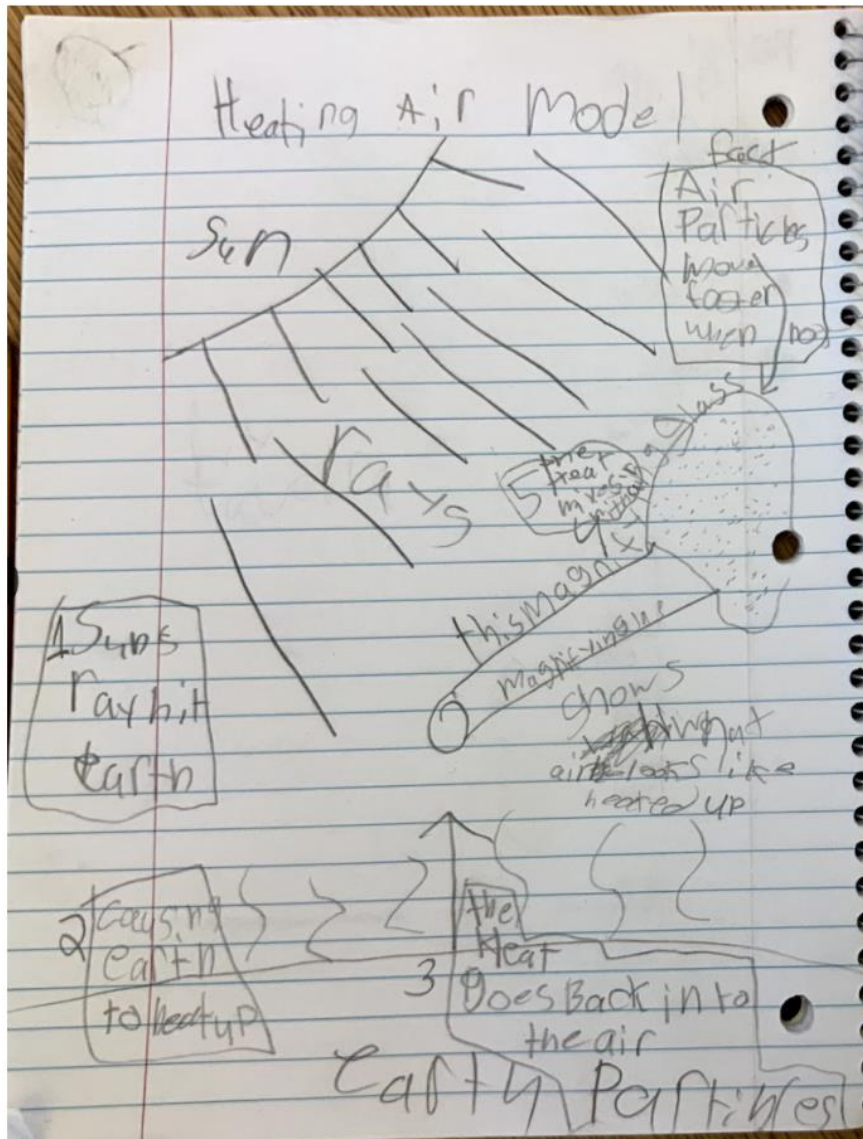 Heating Air Model
Sun
rays
fact
Air
Particles
move
faster
when hot
5
heat
mixes in
glass
this magni
magnifying
shows
what
air looks like
heated up
1 Suns
ray hit
earth
2 causing
earth
to heat up
3 the
Heat
Goes Back into
the air
earth Particles